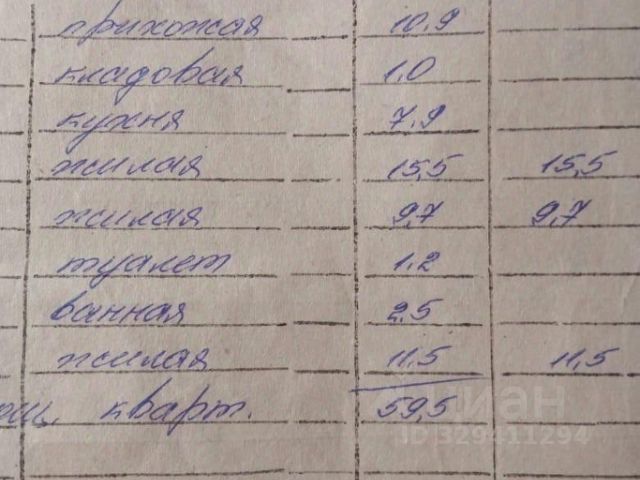 прихожая 10.9
кладовая 1.0
кухня 7.9
жилая 15,5 15,5
жилая 9,7 9,7
туалет 1.2
ванная 2.5
жилая 11,5 11,5
кварт. 59,5
циан
ID 329411294